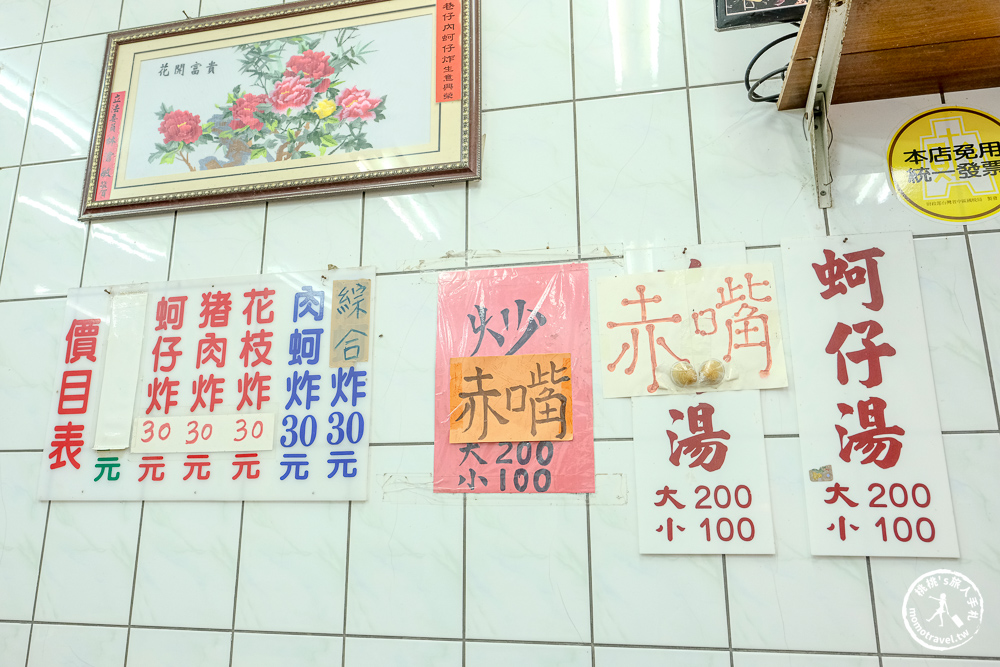 花開富貴
巷仔內蚵仔炸生意興榮
本店免用
統一發票
價目表
元
蚵仔炸30元
豬肉炸30元
花枝炸30元
肉蚵炸30元
綜合炸30元
炒赤嘴
大200
小100
赤嘴湯
大200
小100
蚵仔湯
大200
小100
桃桃's旅人手札
momotravel.tw